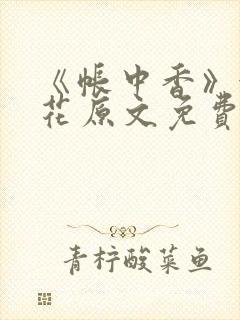 《帐中香》
花原文免费
青柠酸菜鱼